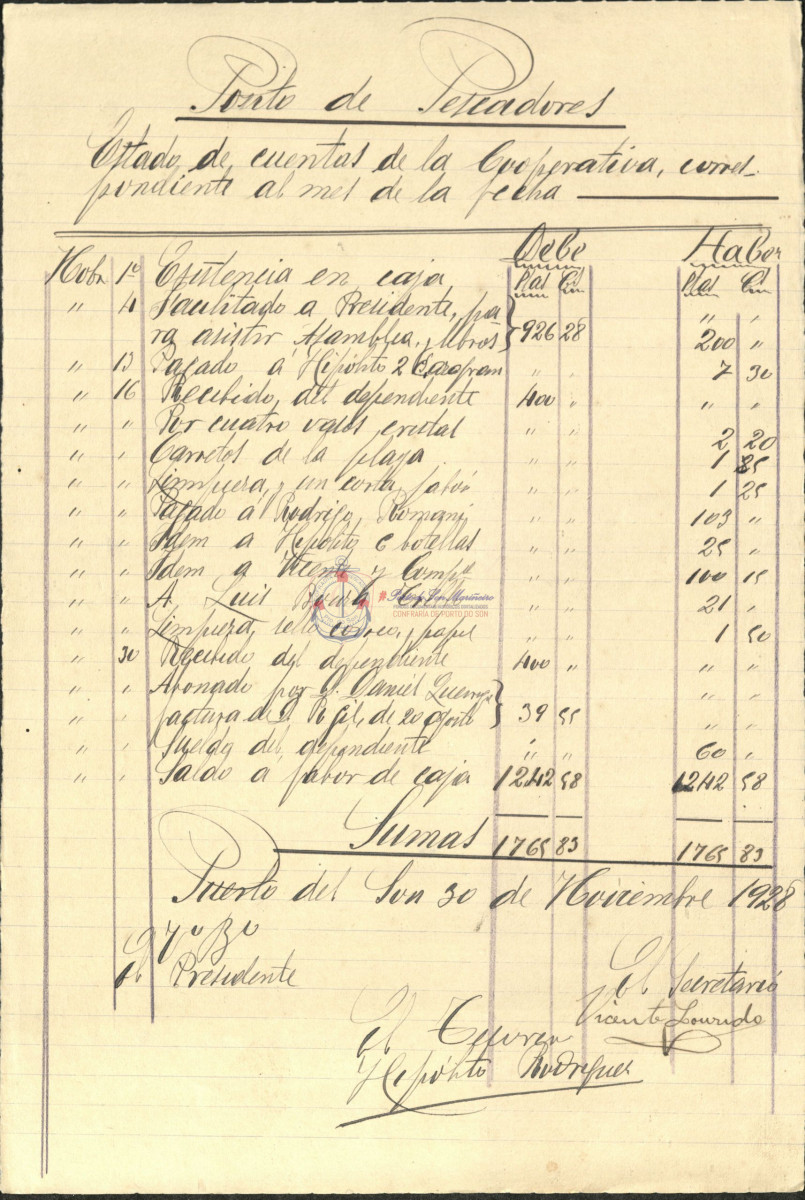 Posito de Pescadores
Estado de cuentas de la Cooperativa, corres-
pondiente al mes de la fecha
Debe Haber
Nobr 1º Existencia en caja Ptas Cts Ptas Cts
" 4 Facilitado a Presidente, pa } " "
ra asistir Asamblea, y libros } 926 28 200 "
" 13 Pagado á Hipólito 2 " " 7 30
" 16 Recibido, del dependiente 400 " " "
" " Por cuatro vasos cristal " " 2 20
" " Carretos de la playa " " 1 25
" " Limpieza, y un corta jabón " " 1 25
" " Pagado á Rodrigo, Romaní " " 103 "
" " Idem a Hipólito, 6 botellas " " 25 "
" " Idem a Vicente y Compª " " 100 15
" " A Luis " " 21 "
PORTO DO SON
CONFRARÍA DE PORTO DO SON
" " Limpieza, sello correo, y papel " " 1 50
" 30 Recibido del dependiente 400 " " "
" " Abonado por D. Daniel } " "
" " factura de D. R Gil, de 20 agosto } 39 55 " "
" " Sueldo del dependiente " " 60 "
" " Saldo a fabor de caja 1242 58 1242 58
Sumas 1765 83 1765 83
Puerto del Son 30 de Noviembre 1928
Vº Bº
El Presidente
El Secretario
Vicente Lourido
El Tesorero
Hipólito Rodriguez